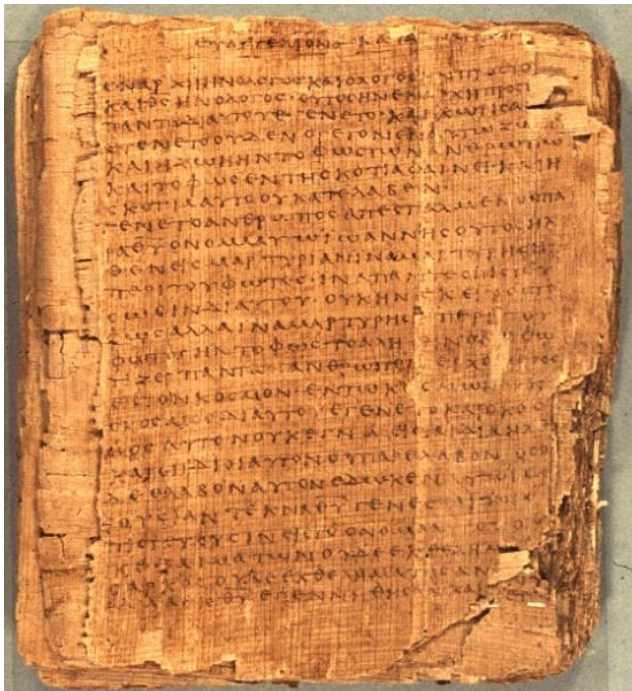 ΕΥΑΓΓΕΛΙΟΝ ΚΑΤΑ
ΕΝΑΡΧΗΗΝΟΛΟΓΟϹΚΑΙΟΛΟΓΟϹΗΝΠΡΟϹΤΟ
ΚΑΙΘϹΗΝΟΛΟΓΟϹ·ΟΥΤΟϹΗΝΕΝΑΡΧΗΠΡΟϹΤ
ΠΑΝΤΑΔΙΑΥΤΟΥΕΓΕΝΕΤΟ·ΚΑΙΧΩΡΙϹΑ
ΕΓΕΝΕΤΟΟΥΔΕΝΟΓΕΓΟΝΕΝΕΝΑΥΤΩΖΩ
ΚΑΙΗΖΩΗΗΝΤΟΦΩϹΤΩΝΑΝΘΡΩΠΩ
ΚΑΙΤΟΦΩϹΕΝΤΗϹΚΟΤΙΑΦΑΙΝΕΙ·ΚΑΙΗ
ϹΚΟΤΙΑΑΥΤΟΟΥΚΑΤΕΛΑΒΕΝ·
ΕΓΕΝΕΤΟΑΝΘΡΩΠΟϹΑΠΕϹΤΑΛΜΕΝΟϹΠΑ
ΡΑΘΥΟΝΟΜΑΑΥΤΩΙΩΑΝΝΗϹΟΥΤΟϹΗΛ
ΘΕΝΕΙϹΜΑΡΤΥΡΙΑΝΙΝΑΜΑΡΤΥΡΗϹΗ
ΠΕΡΙΤΟΥΦΩΤΟϹ·ΙΝΑΠΑΝΤΕϹΠΙϹΤΕΥ
ϹΩϹΙΝΔΙΑΥΤΟΥ·ΟΥΚΗΝΕΚΕΙΝΟϹΤΟ
ΦΩϹΑΛΛΑΙΝΑΜΑΡΤΥΡΗϹΗΠΕΡΙΤΟΥ
ΦΩΤΟϹΗΝΤΟΦΩϹΤΟΑΛΗΘΙΝΟΝΟΦΩ
ΤΙΖΕΙΠΑΝΤΑΑΝΘΡΩΠΟΝΕΡΧΟΜΕΝΟΝ
ΕΙϹΤΟΝΚΟϹΜΟΝ·ΕΝΤΩΚΟϹΜΩΗΝΚΑΙ
ΟΚΟϹΜΟϹΔΙΑΥΤΟΥΕΓΕΝΕΤΟΚΑΙΟΚΟϹ
ΜΟϹΑΥΤΟΝΟΥΚΕΓΝΩΕΙϹΤΑΙΔΙΑΗΛΘΕ
ΚΑΙΟΙΙΔΙΟΙΑΥΤΟΝΟΥΠΑΡΕΛΑΒΟΝ·ΟϹΟΙ
ΔΕΕΛΑΒΟΝΑΥΤΟΝΕΔΩΚΕΝΑΥΤΟΙϹΕΞ
ΟΥϹΙΑΝΤΕΚΝΑΘΥΓΕΝΕϹΘΑΙΤΟΙϹ
ΠΙϹΤΕΥΟΥϹΙΝΕΙϹΤΟΟΝΟΜΑΑΥΤΟΥΟΙΟΥ
ΚΕΞΑΙΜΑΤΩΝΟΥΔΕΕΚΘΕΛΗΜΑ
ϹΑΡΚΟϹΟΥΔΕΕΚΘΕΛΗΜΑΤΟϹΑΝ
ΑΛΛΑΕΚΘΥΕΓΕΝΝΗΘΗϹΑΝΚΑΙΟΛΟΓ